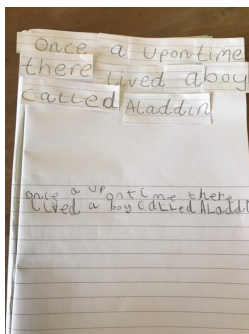 Once a Upontime
there Lived aboy
CaLLed ALaddin
Once a upontime there
Lived a boy CaLLed ALaddi